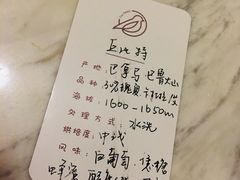 丘比特
产地：巴拿马 巴鲁火山
品种：瑰夏 卡杜拉
海拔：1600-1650m
处理方式：水洗
烘焙度：中浅
风味：白葡萄、焦糖
蜂蜜